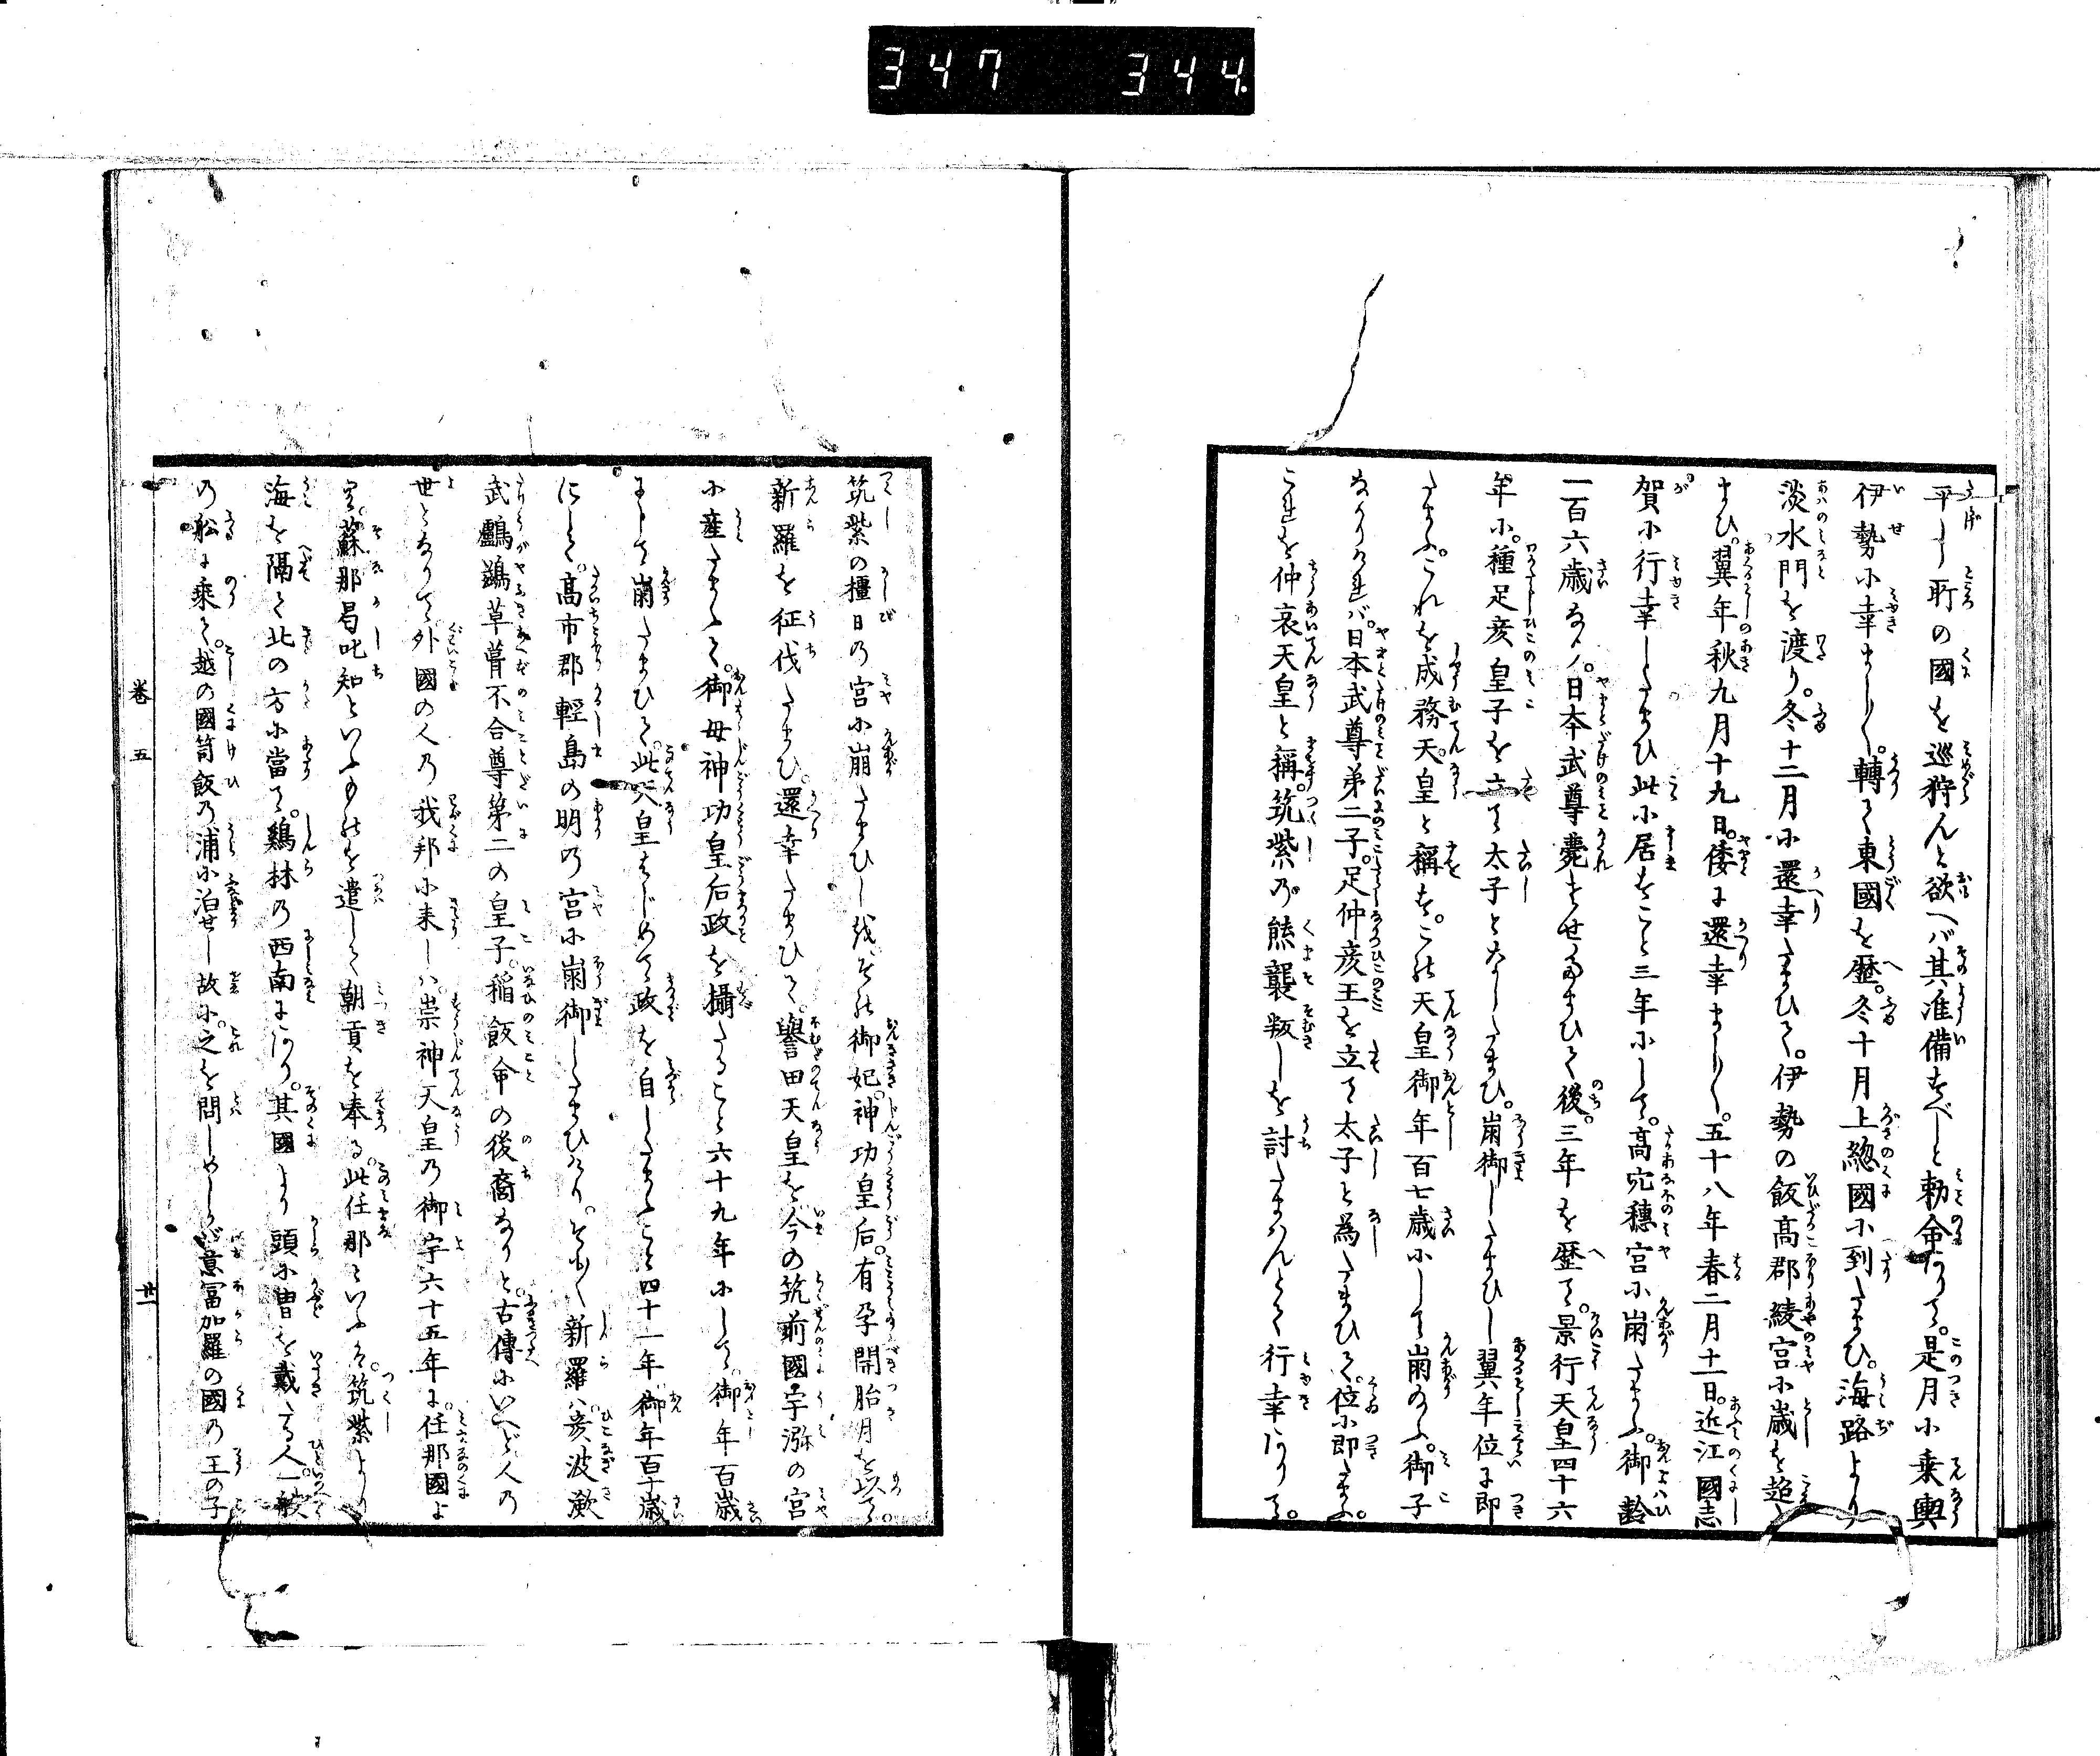 347 344
平し所の國を巡狩んと欲へバ其准備すべしと勅命ありて。是月小乗輿
伊勢小幸まして。轉て東國を歴。冬十月上総國小到たまひ。海路より
淡水門を渡り。冬十二月小還幸たまひて。伊勢の飯高郡綾宮小歳を超
まひ。翼年秋九月十九日。倭に還幸まし〳〵。五十八年春二月十一日。近江國志
賀小行幸したまひ此小居すこと三年小して。高穴穂宮小崩たまふ。御齢
一百六歳なり。日本武尊薨させたまひて後。三年を歴て。景行天皇四十六
年小。種足彦皇子を立て太子となしたまひ。崩御したまひし翼年位に即
たまふ。これを成務天皇と稱す。この天皇御年百七歳小して崩たまふ。御子
なかりけれバ。日本武尊第二子。足仲彦王を立て太子と為たまひて。位小即たまふ。
これを仲哀天皇と稱。筑紫乃熊襲叛しを討たまはんとて行幸ありて。
筑紫の橿日乃宮小崩たまひし後。その御妃。神功皇后。有孕開胎月を以て。
新羅を征伐たまひ。還幸たまひて。譽田天皇を今の筑前國宇瀰の宮
小産たまふて。御母神功皇后政を攝たること六十九年小して。御年百歳
にして崩たまひて。此天皇はじめて政を自したまふこと四十一年御年百十歳
にして。高市郡輕島の明乃宮小崩御したまひけり。そも〳〵新羅ハ彦波瀲
武鸕鷀草葺不合尊第二の皇子。稲飯命の後裔なりと。古傳小いへど人の
世となりて外國の人乃我邦小来しハ。崇神天皇乃御宇六十五年に。任那國よ
り。蘇那曷叱知といふものを遣して朝貢を奉る。此任那といふハ。筑紫より
海を隔て北の方小當て。鶏林乃西南にあり。其國より頭小冑を戴たる人。一艘
乃舩に乗て。越の國笥飯乃浦小泊せし故小。之を問しめしが意富加羅の國乃王の子
巻五 廿一